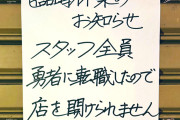 臨時休業の
お知らせ
スタッフ全員
勇者に転職したので
店を開けられません